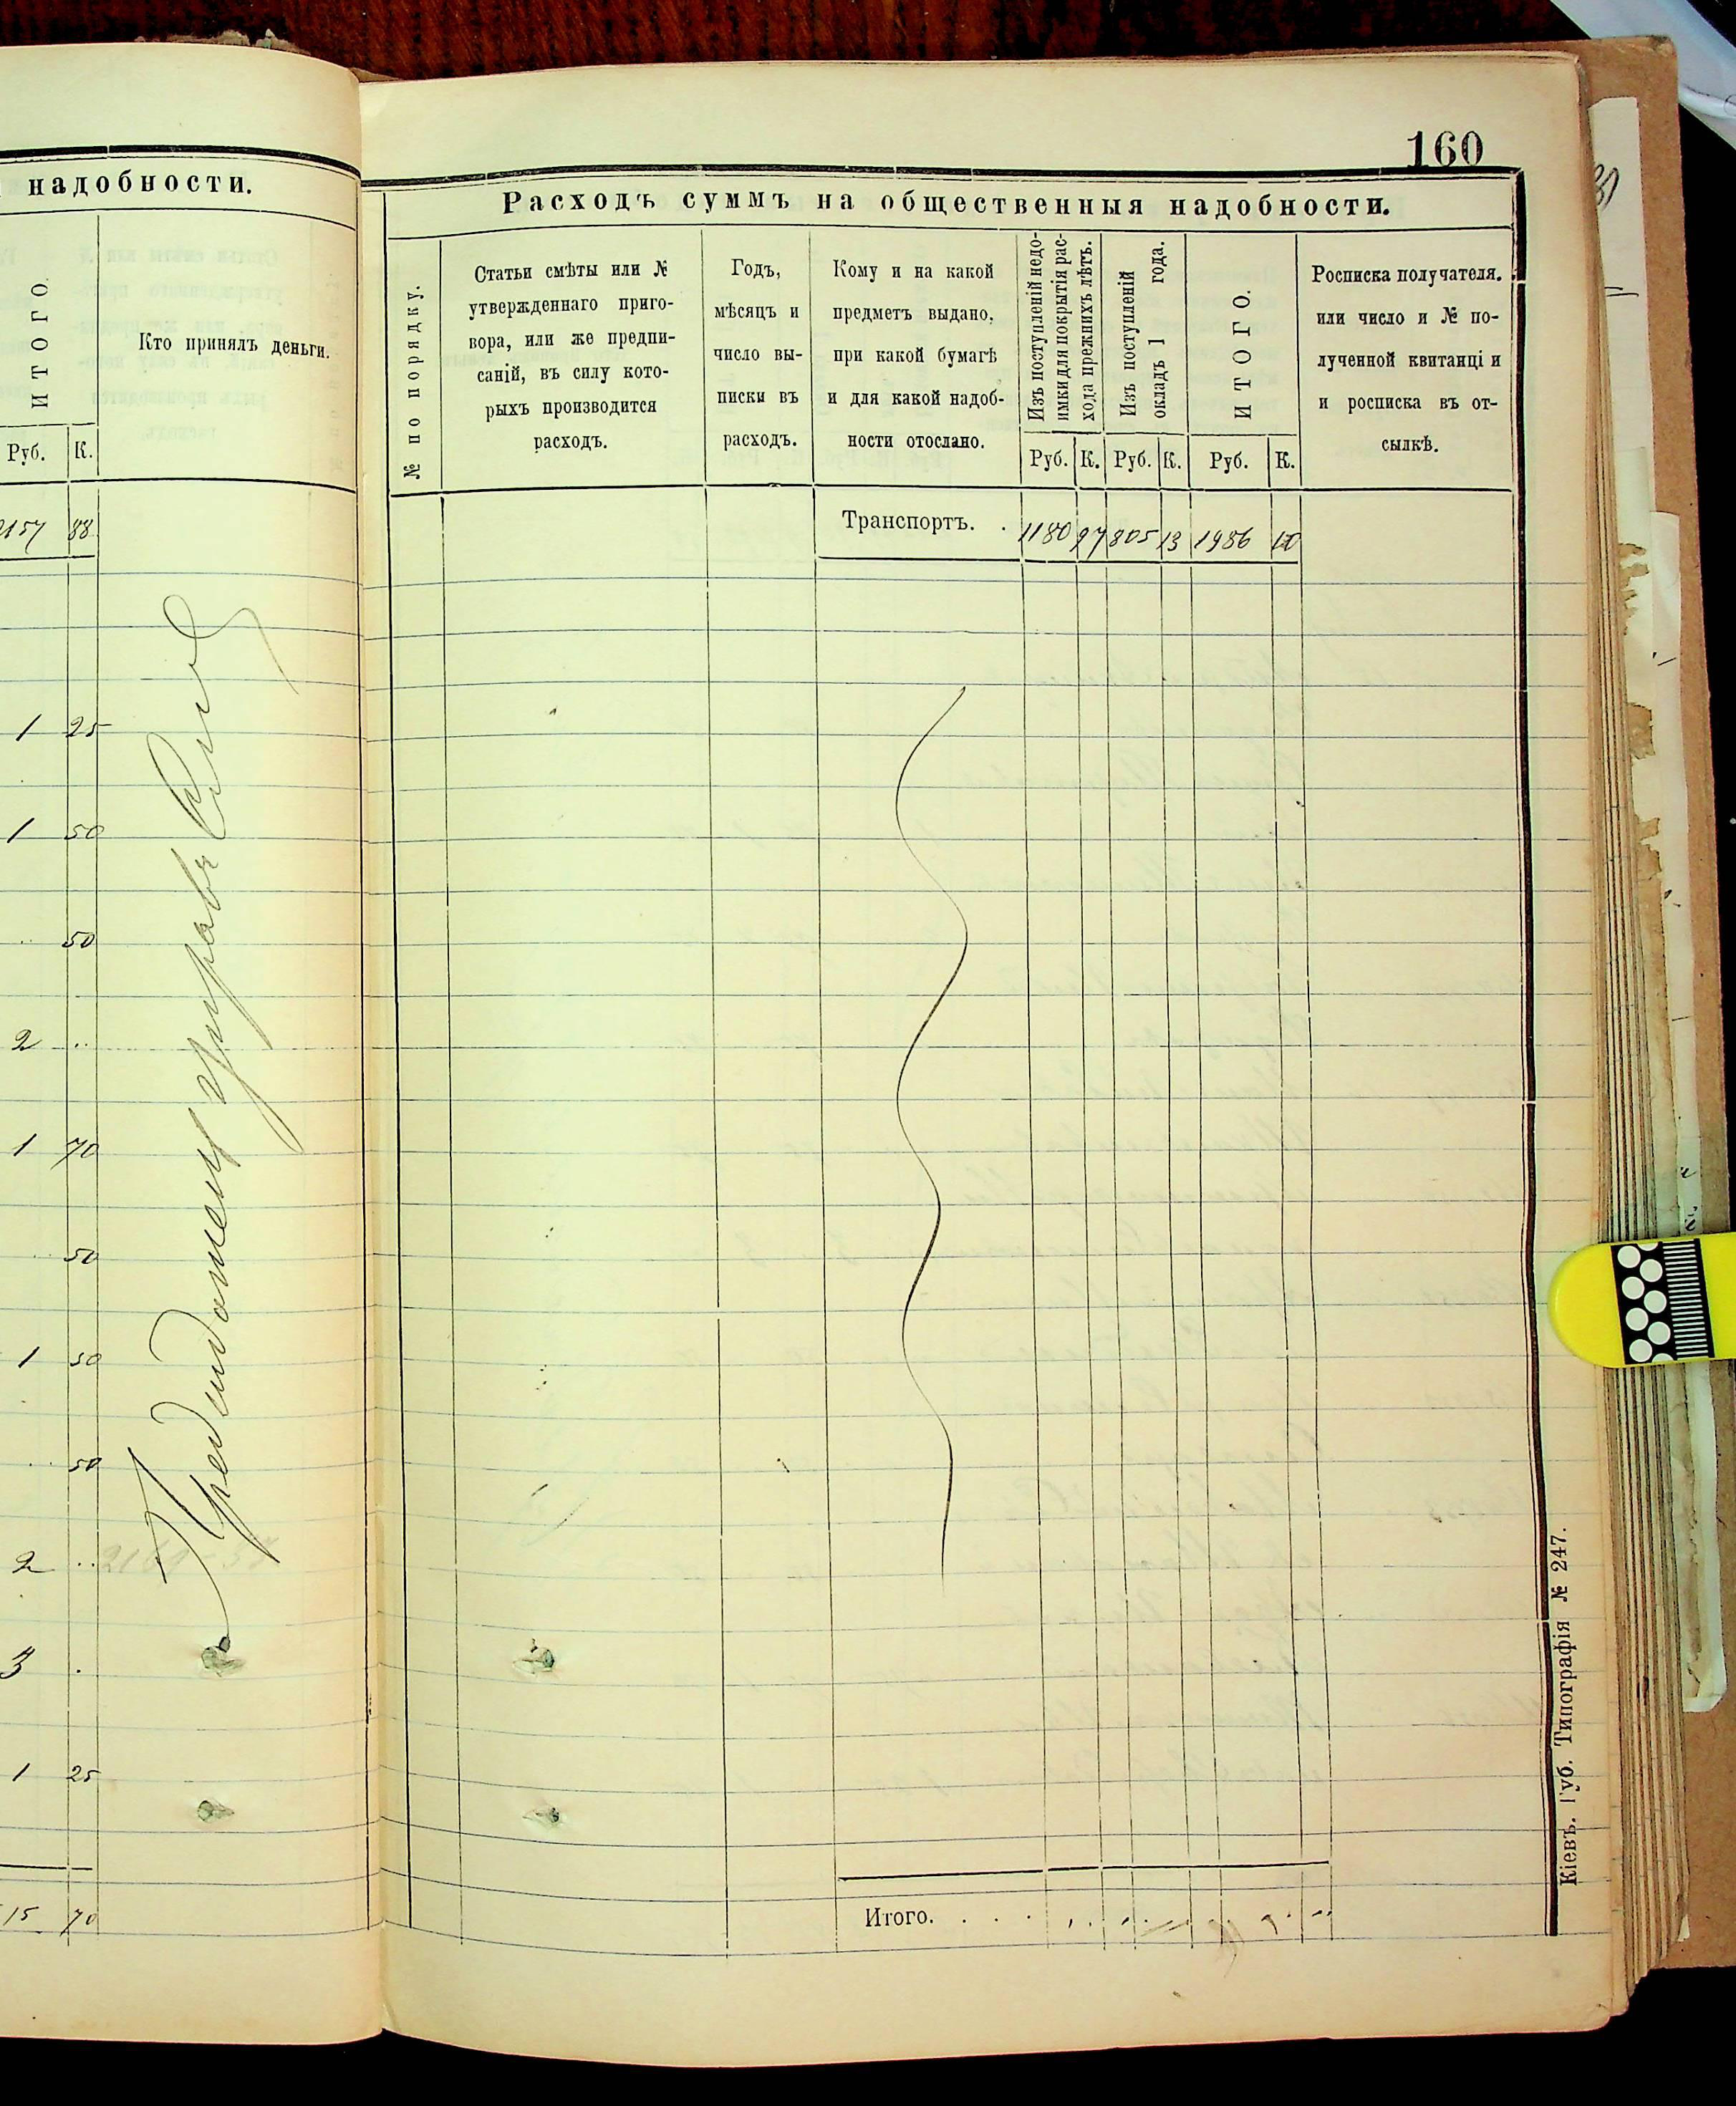 надобности.
ИТОГО.
Кто принялъ деньги.
Руб. К.
2157 88
1 25
1 50
50
2 ..
1 70
50
1 50
50
2 ..
3 .
1 25
15 70
160
Расходъ суммъ на общественныя надобности.
№ по порядку.
Статьи смѣты или №
утвержденнаго приго-
вора, или же предпи-
саній, въ силу кото-
рыхъ производится
расходъ.
Годъ,
мѣсяцъ и
число вы-
писки въ
расходъ.
Кому и на какой
предметъ выдано,
при какой бумагѣ
и для какой надоб-
ности отослано.
Изъ поступленій недо-
имки для покрытія рас-
хода прежнихъ лѣтъ.
Изъ поступленій
окладъ 1 года.
ИТОГО.
Росписка получателя.
или число и № по-
лученной квитанці и
и росписка въ от-
сылкѣ.
Руб. К. Руб. К. Руб. К.
Транспортъ. . 1180 97 805 13 1986 10
Итого. . . . .
Кіевъ. Губ. Типографія № 247.